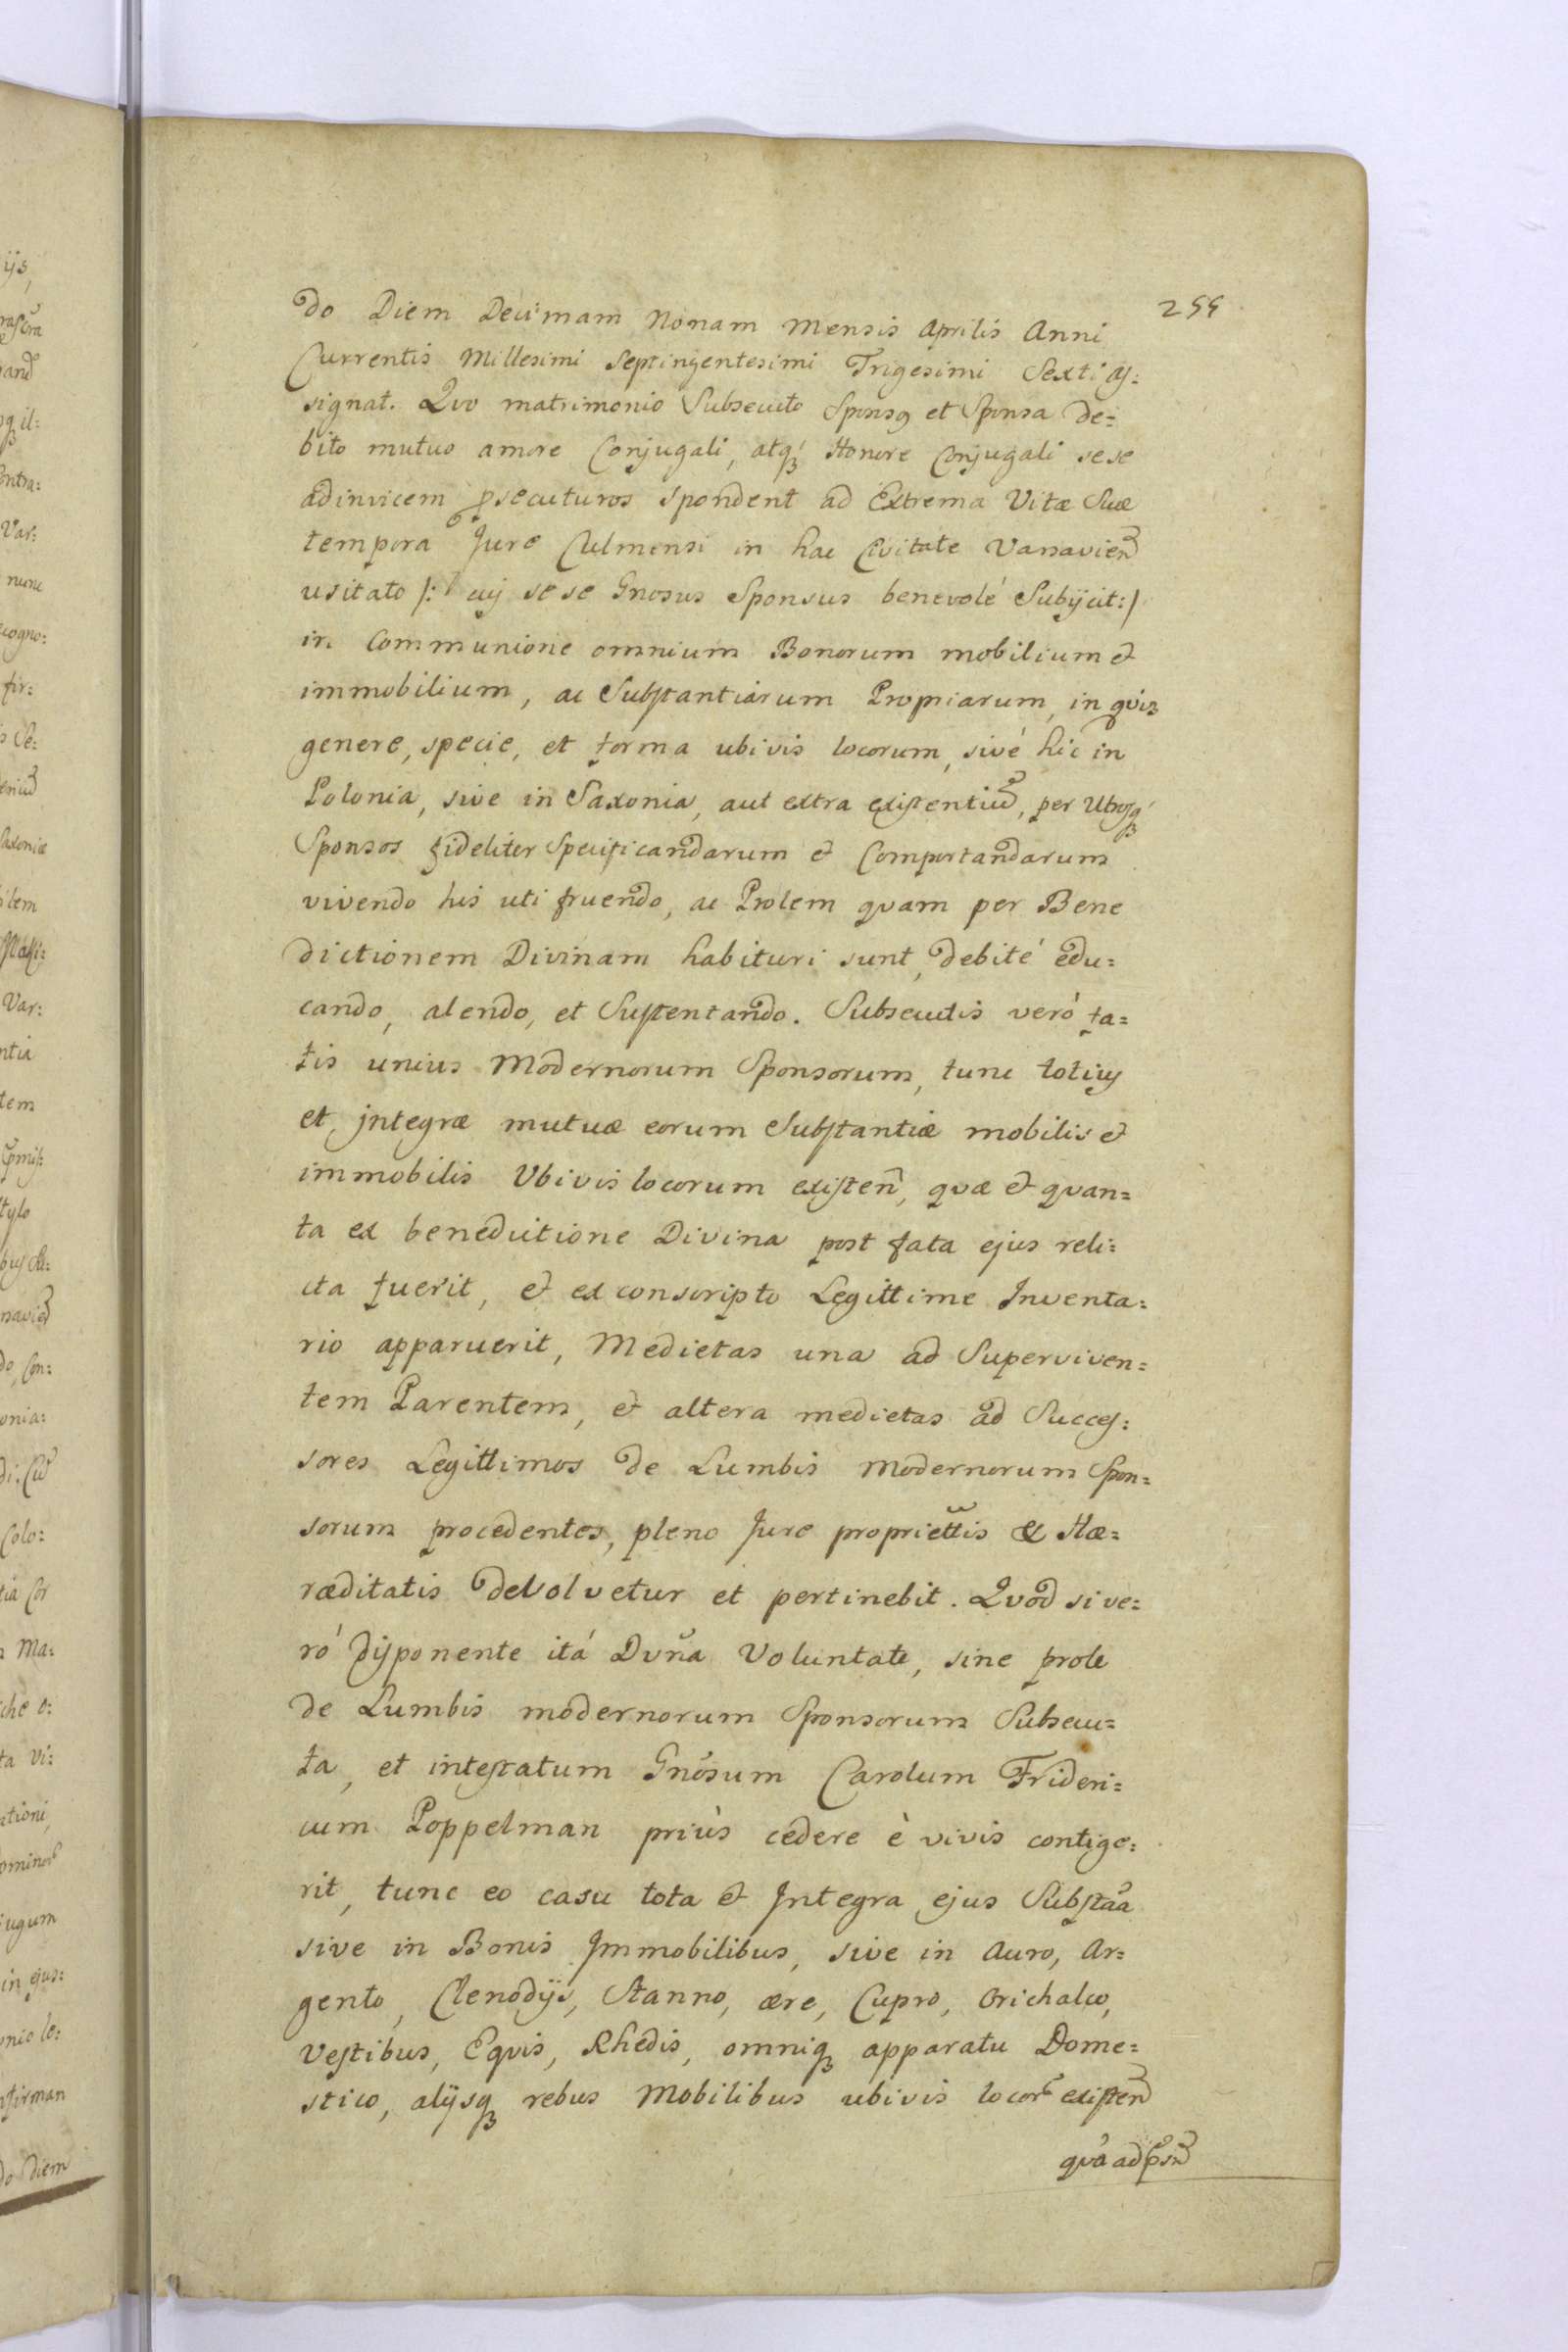 255
do Diem Decimam Nonam Mensis Aprilis Anni
Currentis Millesimi Septingentesimi Trigesimi Sexti as=
signat. Qvo matrimonio Subsecuto Sponsꝯ et Sponsa de=
bito mutuo amore Conjugali, atqꝫ Honore Conjugali sese
adinvicem ꝓsecuturos spondent ad Extrema Vitæ Suæ
tempora Jure Culmensi in hac Civitate Varsavien̄
usitato /: cuj sese Gnosus Sponsus benevolé Subijcit :/
in Communione omnium Bonorum mobilium et
immobilium, ac Substantiarum Propriarum, in qvis
genere, specie, et forma ubivis locorum, sivé hic in
Polonia, sive in Saxonia, aut extra existentiū, per Utrosqꝫ
Sponsos fideliter Specificandarum et Comportandarum
vivendo his uti fruendo, ac Prolem qvam per Bene
dictionem Divinam habituri sunt, debité edu=
cando, alendo, et Sustentando. Subsecutis veró fa=
tis unius Modernorum Sponsorum, tunc totius
et integræ mutuæ eorum Substantiæ mobilis et
immobilis Ubivis locorum existen̄, qvæ et qvan=
ta ex benedictione Divina post fata ejus reli=
cta fuerit, et ex conscripto Legittime Inventa=
rio apparuerit, Medietas una ad Superviven=
tem Parentem, et altera medietas ad Succes=
sores Legittimos de Lumbis Modernorum Spon=
sorum procedentes, pleno Jure propriettis & Hæ=
ræditatis devolvetur et pertinebit. Qvod si ve=
ró disponente itá Dvña Voluntate, sine prole
de Lumbis modernorum Sponsorum Subsecu=
ta, et intestatum Gnōsum Carolum Frideri=
cum Poppelman priùs cedere è vivis contige=
rit, tunc eo casu tota et Integra ejus Substāa
sive in Bonis Immobilibus, sive in Auro, Ar=
gento, Clenodijs, Stanno, ære, Cupro, Orichalco,
Vestibus, Eqvis, Rhedis, omniqꝫ apparatu Dome=
stico, alijsqꝫ rebus Mobilibus ubivis locor existen̄
qvá ad psn̄